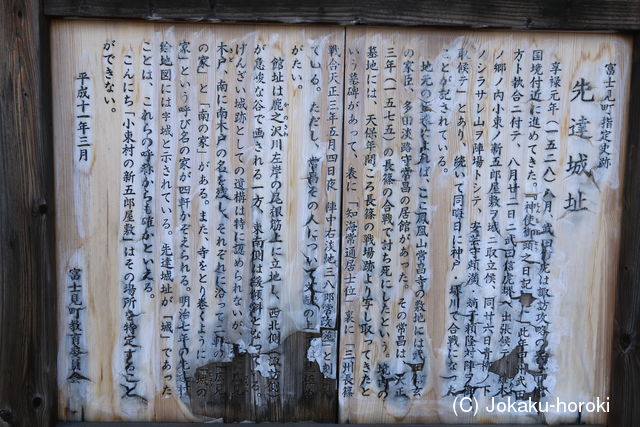 富士見町指定史跡
先達城址
享禄元年(一五二八)八月、武田信虎は諏訪攻略の
国境付近に進めてきた。『神使御頭之日記』に「此年甲州武田
方ト執合ニ付テ、八月廿二日ニ武田信虎堺へ出張候テ
ノ郷ノ内小東ノ新五郎屋敷ヲ城ニ取立候、同廿六日青柳ノ下
ノシラサレ山ヲ陣場トシテ、安芸守頼満、嫡子頼隆対陣
取候テ」とあり、続いて同晦日に神戸、堺川で合戦になった
ことが記されている。
地元の伝承によれば、ここ鳳凰山常昌寺の敷地には武田信玄
の家臣、多田淡路守常昌の居館があった。その常昌は、天正
三年(一五七五)の長篠の合戦で討ち死にしたという。境内の
墓地には、天保年間ころ長篠の戦場跡より写し取ってきたと
いう墓碑があって、表に「知海常通居士位」、裏に「三州長篠
戦合天正三年五月四日夜、陣中右淡地三八郎常
ている。ただし、常昌その人について
がたい。
館址は鹿之沢川左岸の尾根筋上に立地し、西北側(諏訪側)
が急峻な谷で画される一方、東南側は緩傾斜となっている。
げんざい城跡としての遺構は特に認められないが、
木戸、南に南木戸の名を残し、それぞれに沿って二軒の
の家」と「南の家」がある。また、寺をとり巻くように
家」という呼び名の家が四軒かぞえられる。明治七年の先達村
絵地図には字城と示されている。先達城址が「城」であった
ことは、これらの呼称からも確かといえる。
こんにち「小東村の新五郎屋敷」はその場所を特定すること
ができない。
平成十一年三月
富士見町教育委員会
(C) Jokaku-horoki